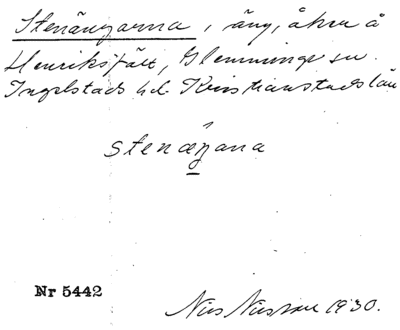 Stenängarna, äng, åkra å
Henriksfält, Glemminge sn.
Ingelstads hd Kristianstads län
stenæŋana
Nr 5442
Nils Nilsson 1930.